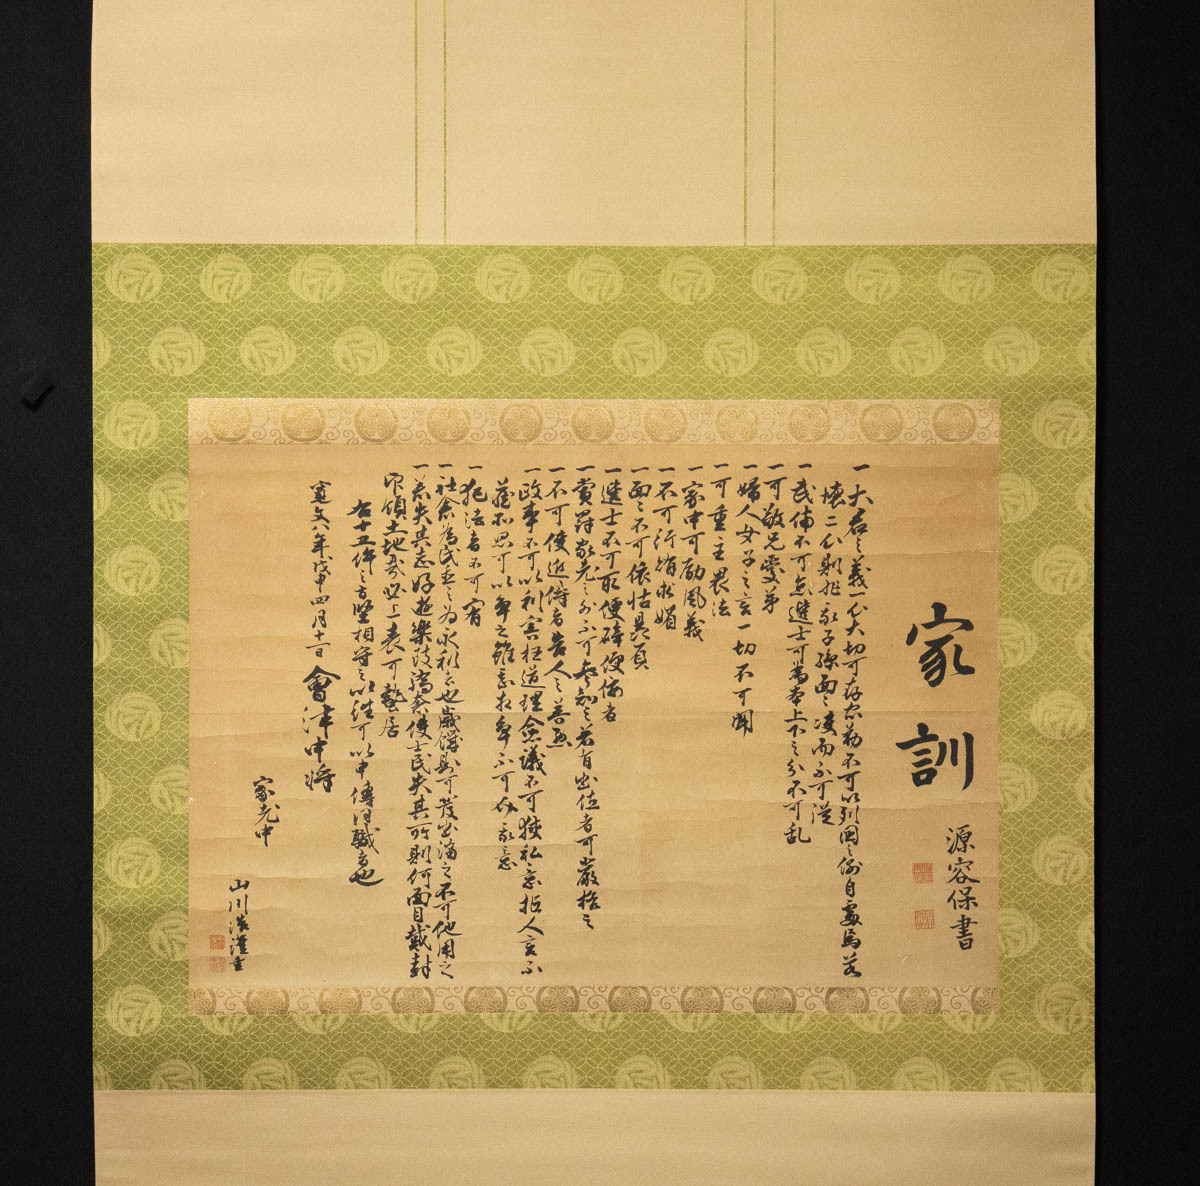 家訓
源容保書
一大君之義一心大切可存忠勤不可以列国之例自處焉若
懐二心則非我子孫面々決而不可従
一武備不可怠選士可為本上下之分不可乱
一可敬兄愛弟
一婦人女子之言一切不可聞
一可重主畏法
一家中可励風義
一不可行賄求媚
一面々不可依怙贔屓
一選士不可取便辟便佞者
一賞罰家老之外不可参知之若有出位者可嚴格之
一不可使近侍者告人之善悪
一政事不可以利害枉道理僉議不可挟私意拒人言不
蔵所思可以争之雖甚相争不可介我意
一犯法者不可宥
一社倉為民置之為永利者也歳饑則可發出濟之不可他用之
一若失其志好遊樂致驕奢使士民失其所則何面目戴封
印領土地哉必上表可蟄居
右十五件之旨堅相守之以往可以申傳同職者也
寛文八年戊申四月十一日 會津中将
家老中
山川浩謹書